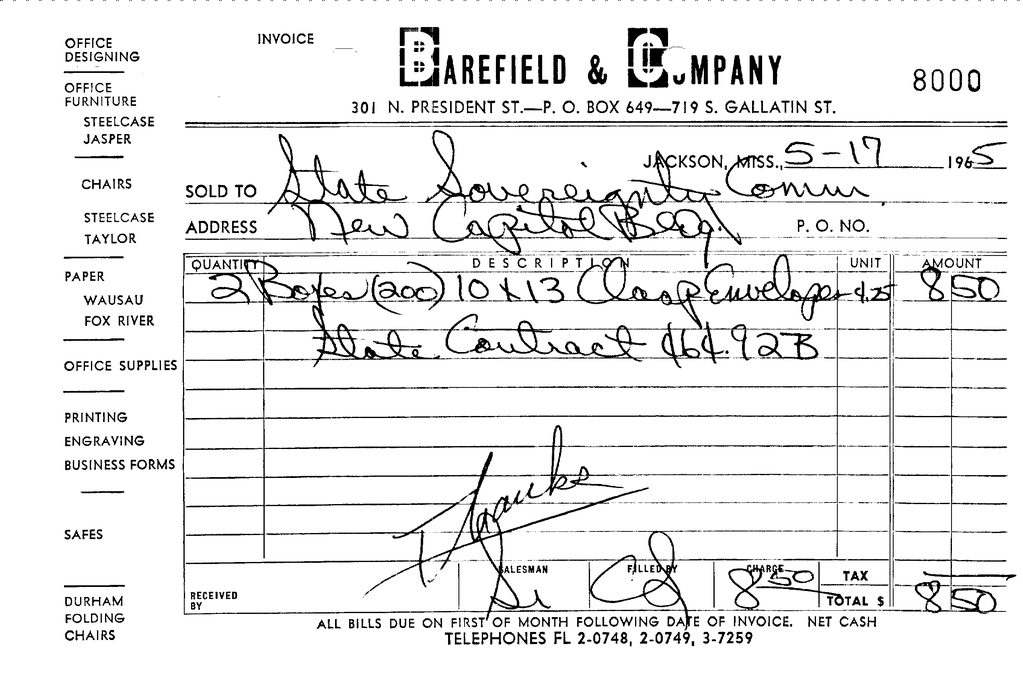 INVOICE
BAREFIELD & COMPANY
8000
301 N. PRESIDENT ST.—P. O. BOX 649—719 S. GALLATIN ST.
JACKSON, MISS., 5-17 1965
SOLD TO State Sovereignty Comm.
ADDRESS New Capitol Bldg. P. O. NO.
QUANTITY DESCRIPTION UNIT AMOUNT
2 Boxes (200) 10 x 13 Clasp Envelopes 4.25 8 50
State Contract 464.92B
Thanks
RECEIVED BY
SALESMAN
FILLED BY
CHARGE 8 50
TAX
TOTAL $ 8 50
ALL BILLS DUE ON FIRST OF MONTH FOLLOWING DATE OF INVOICE. NET CASH
TELEPHONES FL 2-0748, 2-0749, 3-7259
OFFICE
DESIGNING
OFFICE
FURNITURE
STEELCASE
JASPER
CHAIRS
STEELCASE
TAYLOR
PAPER
WAUSAU
FOX RIVER
OFFICE SUPPLIES
PRINTING
ENGRAVING
BUSINESS FORMS
SAFES
DURHAM
FOLDING
CHAIRS